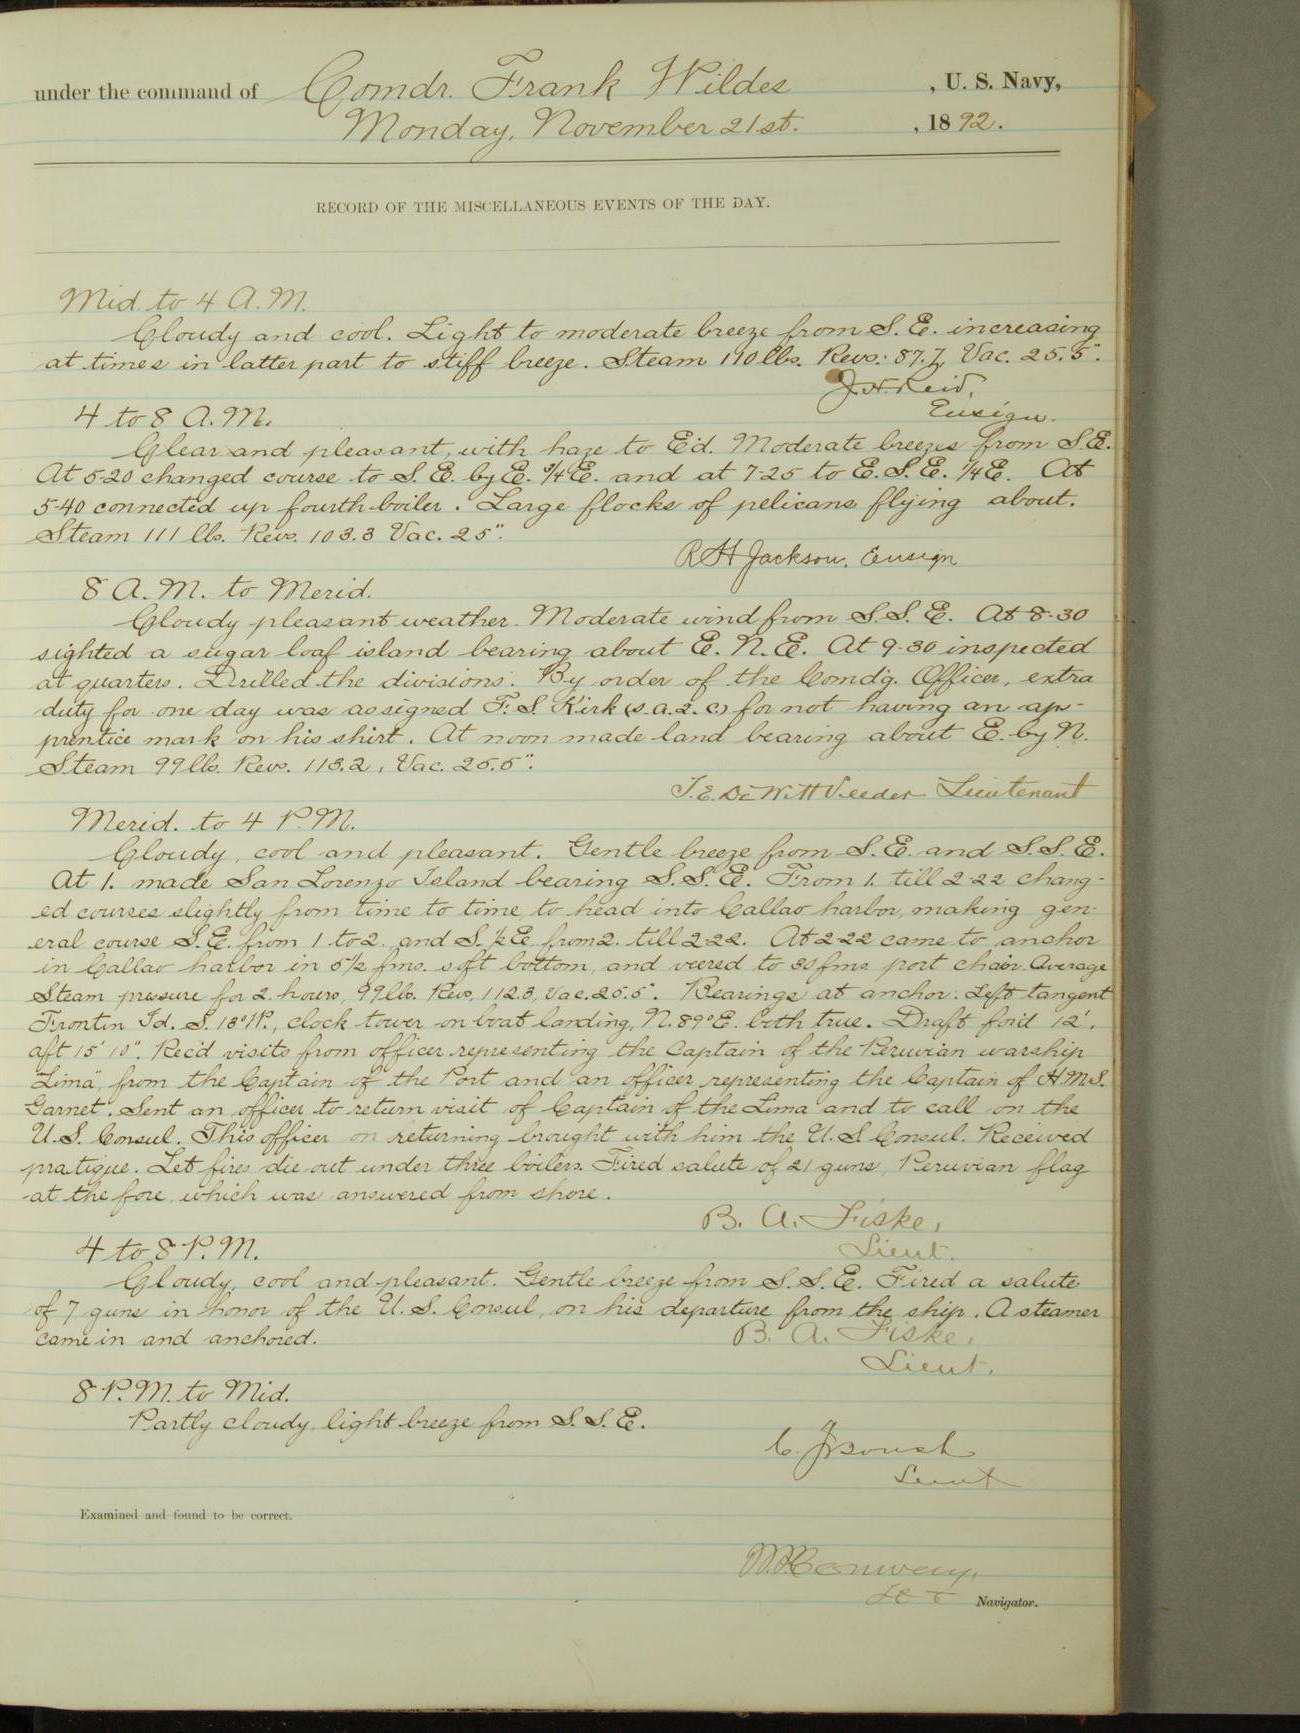 under the command of Comdr. Frank Wildes , U. S. Navy,
Monday, November 21st. , 1892.
RECORD OF THE MISCELLANEOUS EVENTS OF THE DAY.
Mid. to 4 A.M.
Cloudy and cool. Light to moderate breeze from S.E. increasing
at times in latter part to stiff breeze. Steam 110 lbs. Revs. 87.7, Vac. 25.5".
J.H. Reid,
Ensign.
4 to 8 A.M.
Clear and pleasant, with haze to E'd. Moderate breezes from S.E.
At 5-20 changed course to S.E. by E. 3/4 E. and at 7-25 to E.S.E. 1/4 E. At
5-40 connected up fourth boiler. Large flocks of pelicans flying about.
Steam 111 lbs. Revs. 103.3 Vac. 25".
R H Jackson, Ensign
8 A.M. to Merid.
Cloudy pleasant weather. Moderate wind from S.S.E. At 8-30
sighted a sugar loaf island bearing about E.N.E. At 9-30 inspected
at quarters. Drilled the divisions. By order of the Comdg. Officer, extra
duty for one day was assigned F.S. Kirk (s.a.2.c.) for not having an ap-
prentice mark on his shirt. At noon made land bearing about E. by N.
Steam 99 lbs. Revs. 113.2, Vac. 25.5".
T.E. DeWitt Veeder Lieutenant
Merid. to 4 P.M.
Cloudy, cool and pleasant. Gentle breeze from S.E. and S.S.E.
At 1. made San Lorenzo Island bearing S.S.E. From 1. till 2-22 chang-
ed courses slightly from time to time, to head into Callao harbor, making gen-
eral course S.E. from 1 to 2, and S. 1/2 E. from 2. till 2-22. At 2-22 came to anchor
in Callao harbor in 5 1/2 fms. soft bottom, and veered to 30 fms. port chain. Average
Steam pressure for 2 hours, 99 lbs. Revs, 112.3, Vac. 25.5". Bearings at anchor: Left tangent
Frontin Id. S. 18° W., clock tower on boat landing, N. 89° E. both true. Draft for'd 12',
aft 15' 10". Rec'd visits from officer representing the Captain of the Peruvian warship
"Lima", from the Captain of the Port and an officer representing the Captain of H.M.S.
Garnet. Sent an officer to return visit of Captain of the Lima and to call on the
U.S. Consul. This officer on returning brought with him the U.S. Consul. Received
pratique. Let fires die out under three boilers. Fired salute of 21 guns, Peruvian flag
at the fore, which was answered from shore.
B. A. Fiske,
Lieut.
4 to 8 P.M.
Cloudy, cool and pleasant. Gentle breeze from S.S.E. Fired a salute
of 7 guns in honor of the U.S. Consul, on his departure from the ship. A steamer
came in and anchored.
B. A. Fiske,
Lieut.
8 P.M. to Mid.
Partly cloudy, light breeze from S.S.E.
C. J. Boush
Lieut
Examined and found to be correct.
W.P. Conway,
Navigator.